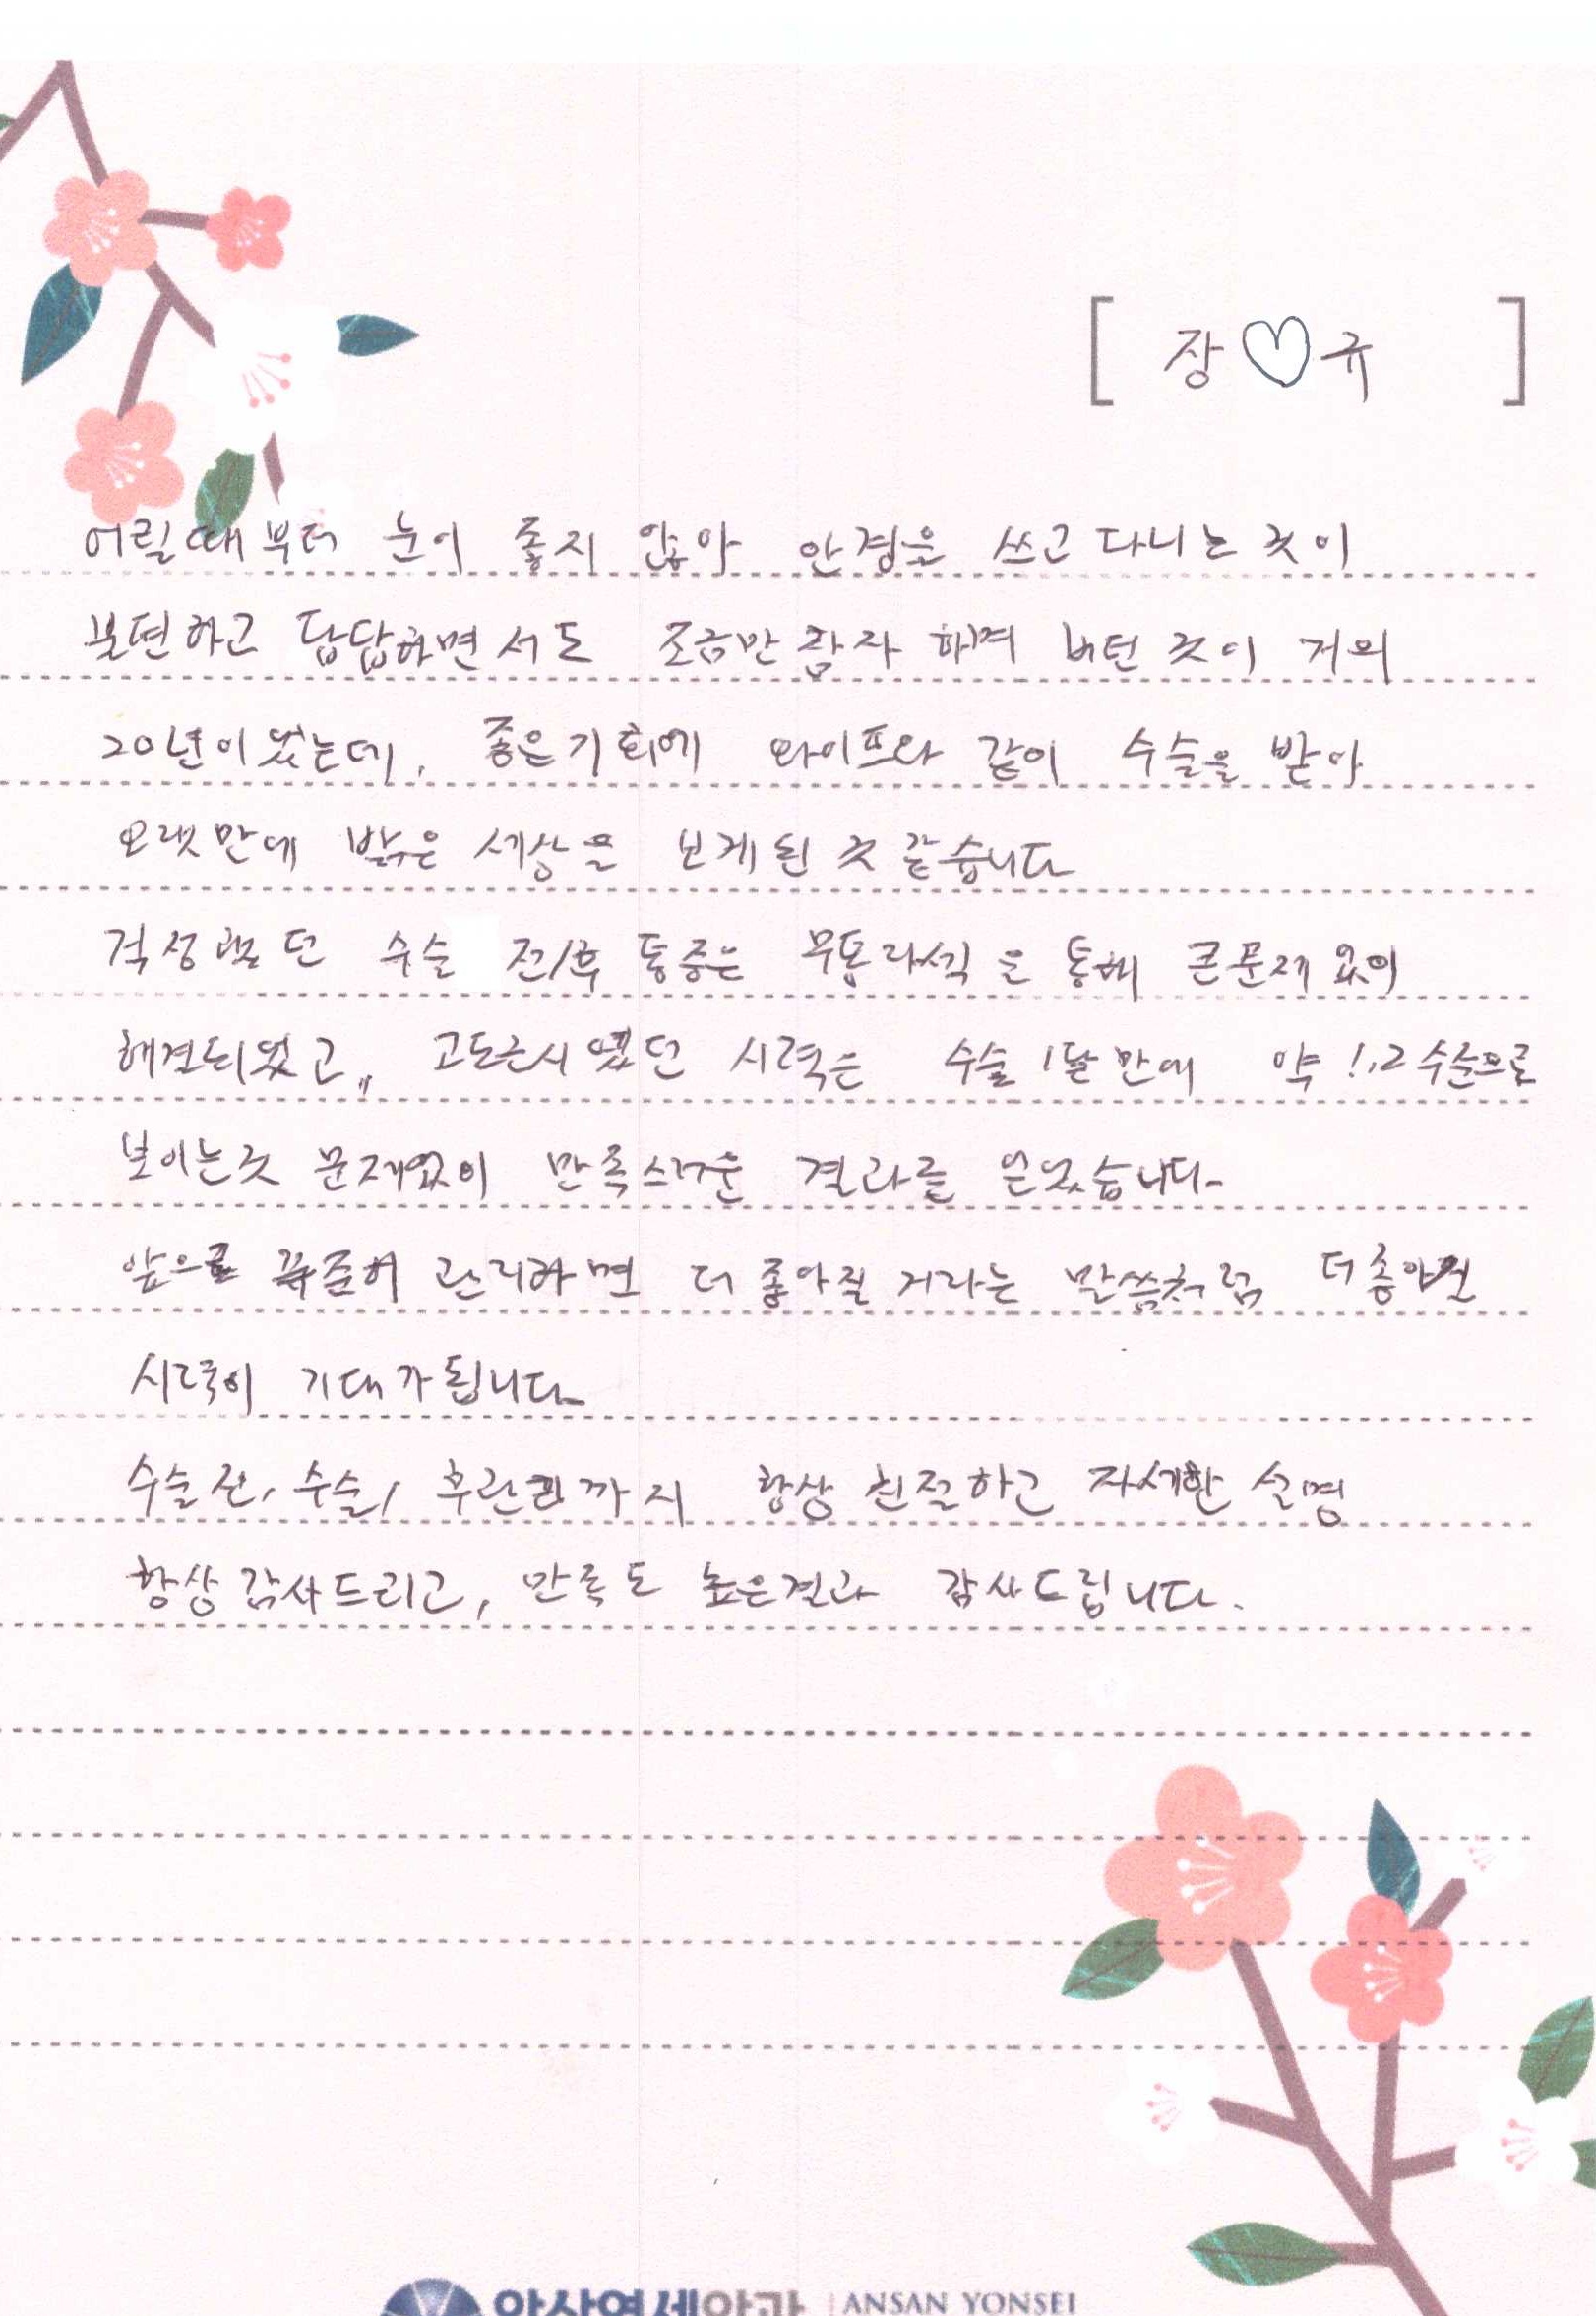 [ 장♡규 ]
어릴때부터 눈이 좋지 않아 안경을 쓰고 다니는 것이
불편하고 답답하면서도 조금만 참자 하며 버틴 것이 거의
20년이었는데, 좋은기회에 와이프와 같이 수술을 받아
오랫만에 밝은 세상을 보게된 것 같습니다
걱정했던 수술 전/후 통증은 무통라섹을 통해 큰문제 없이
해결되었고,, 고도근시였던 시력은 수술 1달만에 약 1.2 수준으로
보이는것 문제없이 만족스러운 결과를 얻었습니다.
앞으로 꾸준히 관리하면 더 좋아질 거라는 말씀처럼 더좋아질
시력이 기대가 됩니다.
수술전, 수술, 후관리까지 항상 친절하고 자세한 설명
항상 감사드리고, 만족도 높은결과 감사드립니다.
안산연세안과 | ANSAN YONSEI